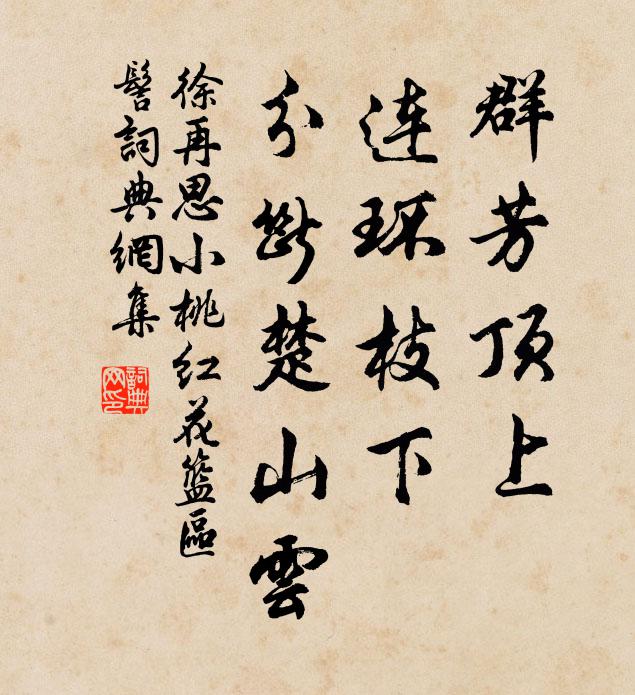 群芳顶上
连环枝下
分断楚山雲
徐再思小桃红花篮區
髻詞典網集
詞典网印